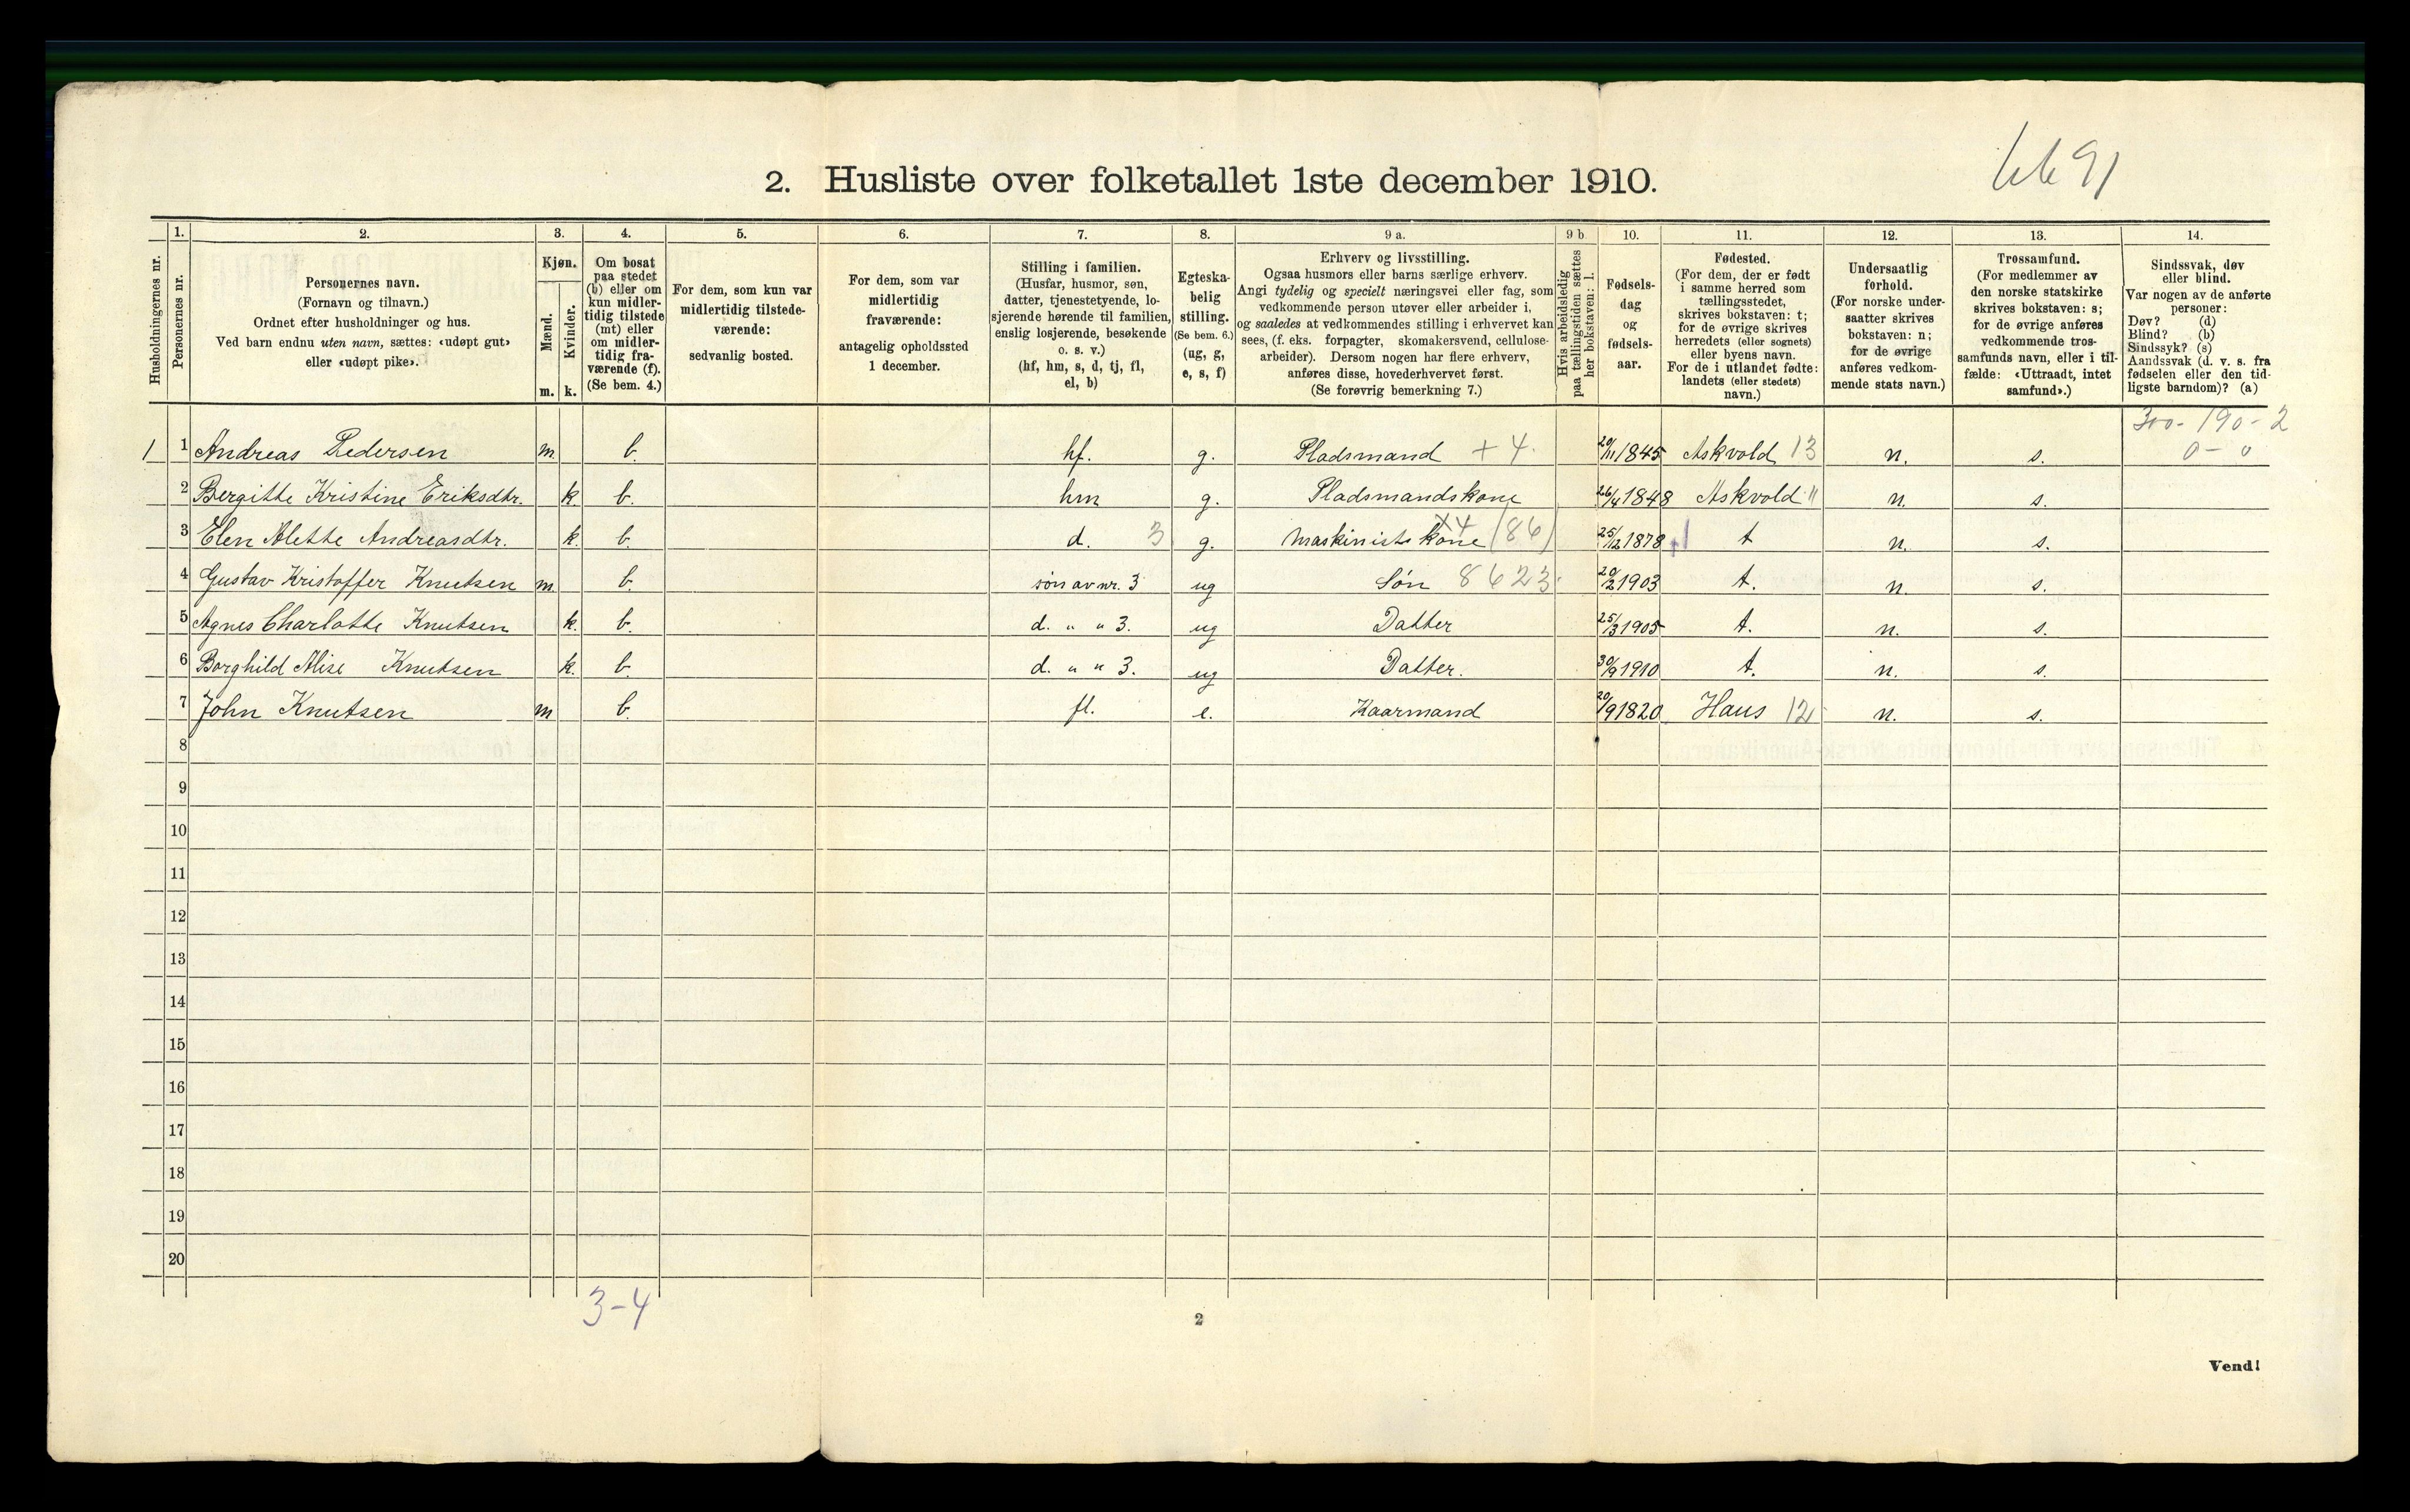 2. Husliste over folketallet 1ste december 1910.
Husholdningernes nr.
1.
Personernes nr.
2.
Personernes navn.
(Fornavn og tilnavn.)
Ordnet efter husholdninger og hus.
Ved barn endnu uten navn, sættes: «udøpt gut»
eller «udøpt pike».
3.
Kjøn.
Mænd.
Kvinder.
m. k.
4.
Om bosat
paa stedet
(b) eller om
kun midler-
tidig tilstede
(mt) eller
om midler-
tidig fra-
værende (f).
(Se bem. 4.)
5.
For dem, som kun var
midlertidig tilstede-
værende:
sedvanlig bosted.
6.
For dem, som var
midlertidig
fraværende:
antagelig opholdssted
1 december.
7.
Stilling i familien.
(Husfar, husmor, søn,
datter, tjenestetyende, lo-
sjerende hørende til familien,
enslig losjerende, besøkende
o. s. v.)
(hf, hm, s, d, tj, fl,
el, b)
8.
Egteska-
belig
stilling.
(Se bem. 6.)
(ug, g,
e, s, f)
9 a.
Erhverv og livsstilling.
Ogsaa husmors eller barns særlige erhverv.
Angi tydelig og specielt næringsvei eller fag, som
vedkommende person utøver eller arbeider i,
og saaledes at vedkommendes stilling i erhvervet kan
sees, (f. eks. forpagter, skomakersvend, cellulose-
arbeider). Dersom nogen har flere erhverv,
anføres disse, hovederhvervet først.
(Se forøvrig bemerkning 7.)
9 b
Hvis arbeidsledig
paa tællingstiden sættes
her bokstaven: l.
10.
Fødsels-
dag
og
fødsels-
aar.
11.
Fødested.
(For dem, der er født
i samme herred som
tællingsstedet,
skrives bokstaven: t;
for de øvrige skrives
herredets (eller sognets)
eller byens navn.
For de i utlandet fødte:
landets (eller stedets)
navn.)
12.
Undersaatlig
forhold.
(For norske under-
saatter skrives
bokstaven: n;
for de øvrige
anføres vedkom-
mende stats navn.)
13.
Trossamfund.
(For medlemmer av
den norske statskirke
skrives bokstaven: s;
for de øvrige anføres
vedkommende tros-
samfunds navn, eller i til-
fælde: «Uttraadt, intet
samfund».)
14.
Sindssvak, døv
eller blind.
Var nogen av de anførte
personer:
Døv? (d)
Blind? (b)
Sindssyk? (s)
Aandssvak (d. v. s. fra
fødselen eller den tid-
ligste barndom)? (a)
300-190-2
0-0
1 1 Andreas Pedersen m b. hf. g. Pladsmand +4 20/11 1845 Askvold 13 n. s.
2 Bergitte Kristine Eriksdtr. k. b. hm g. Pladsmandskone 26/4 1848 Askvold " n. s.
3 Elen Alette Andreasdtr. k. b. d. 3 g. Maskinistskone x4 (86) 25/12 1878 t n. s.
4 Gustav Kristoffer Knutsen m b. søn av nr. 3 ug Søn 8623 20/2 1903 t. n. s.
5 Agnes Charlotte Knutsen k. b. d. " " 3. ug Datter 25/3 1905 t. n. s.
6 Borghild Alise Knutsen k. b. d. " " 3. ug Datter. 30/9 1910 t. n. s.
7 John Knutsen m b. fl. e. Kaarmand 20/9 1820 Haus 12 n. s.
8
9
10
11
12
13
14
15
16
17
18
19
20
3-4
2
Vend!